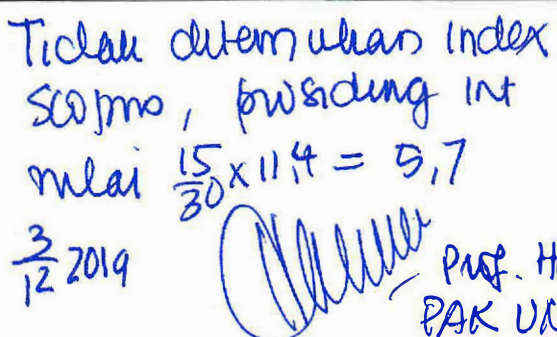 Tidak ditemukan Index
Scopus, prosiding Int
nilai 15/30 x 11,4 = 5,7
3/12 2019
Prof. H
PAK UN